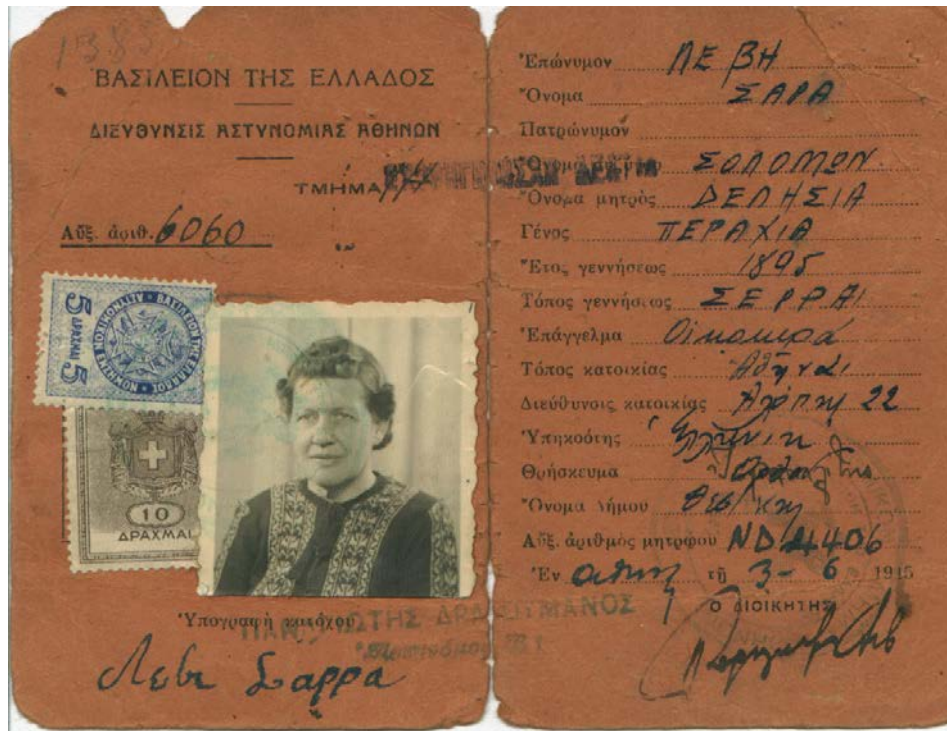 1383
ΒΑΣΙΛΕΙΟΝ ΤΗΣ ΕΛΛΑΔΟΣ
ΔΙΕΥΘΥΝΣΙΣ ΑΣΤΥΝΟΜΙΑΣ ΑΘΗΝΩΝ
ΤΜΗΜΑ
Αὔξ. ἀριθ. 6060
5 ΔΡΑΧΜΑΙ 5
ΒΑΣΙΛΕΙΟΝ ΤΗΣ ΕΛΛΑΔΟΣ
10
ΔΡΑΧΜΑΙ
Ὑπογραφὴ κατόχου
ΔΡΑΚΟΥΜΑΝΟΣ
Λεβι Σαρρα
Ἐπώνυμον ΛΕΒΗ
Ὄνομα ΣΑΡΑ
Πατρώνυμον
Ὄνομα ΣΟΛΟΜΩΝ
Ὄνομα μητρὸς ΔΕΛΗΣΙΑ
Γένος ΠΕΡΑΧΙΑ
Ἔτος γεννήσεως 1895
Τόπος γεννήσεως ΣΕΡΡΑΙ
Ἐπάγγελμα Οἰκοκυρά
Τόπος κατοικίας Ἀθῆναι
Διεύθυνσις κατοικίας 22
Ὑπηκοότης Ἑλληνικη
Θρήσκευμα
Ὄνομα Δήμου Θεσ/κης
Αὔξ. ἀριθμὸς μητρώου ΝD 4406
Ἐν τῇ 3-6 1945
Ο ΔΙΟΙΚΗΤΗΣ